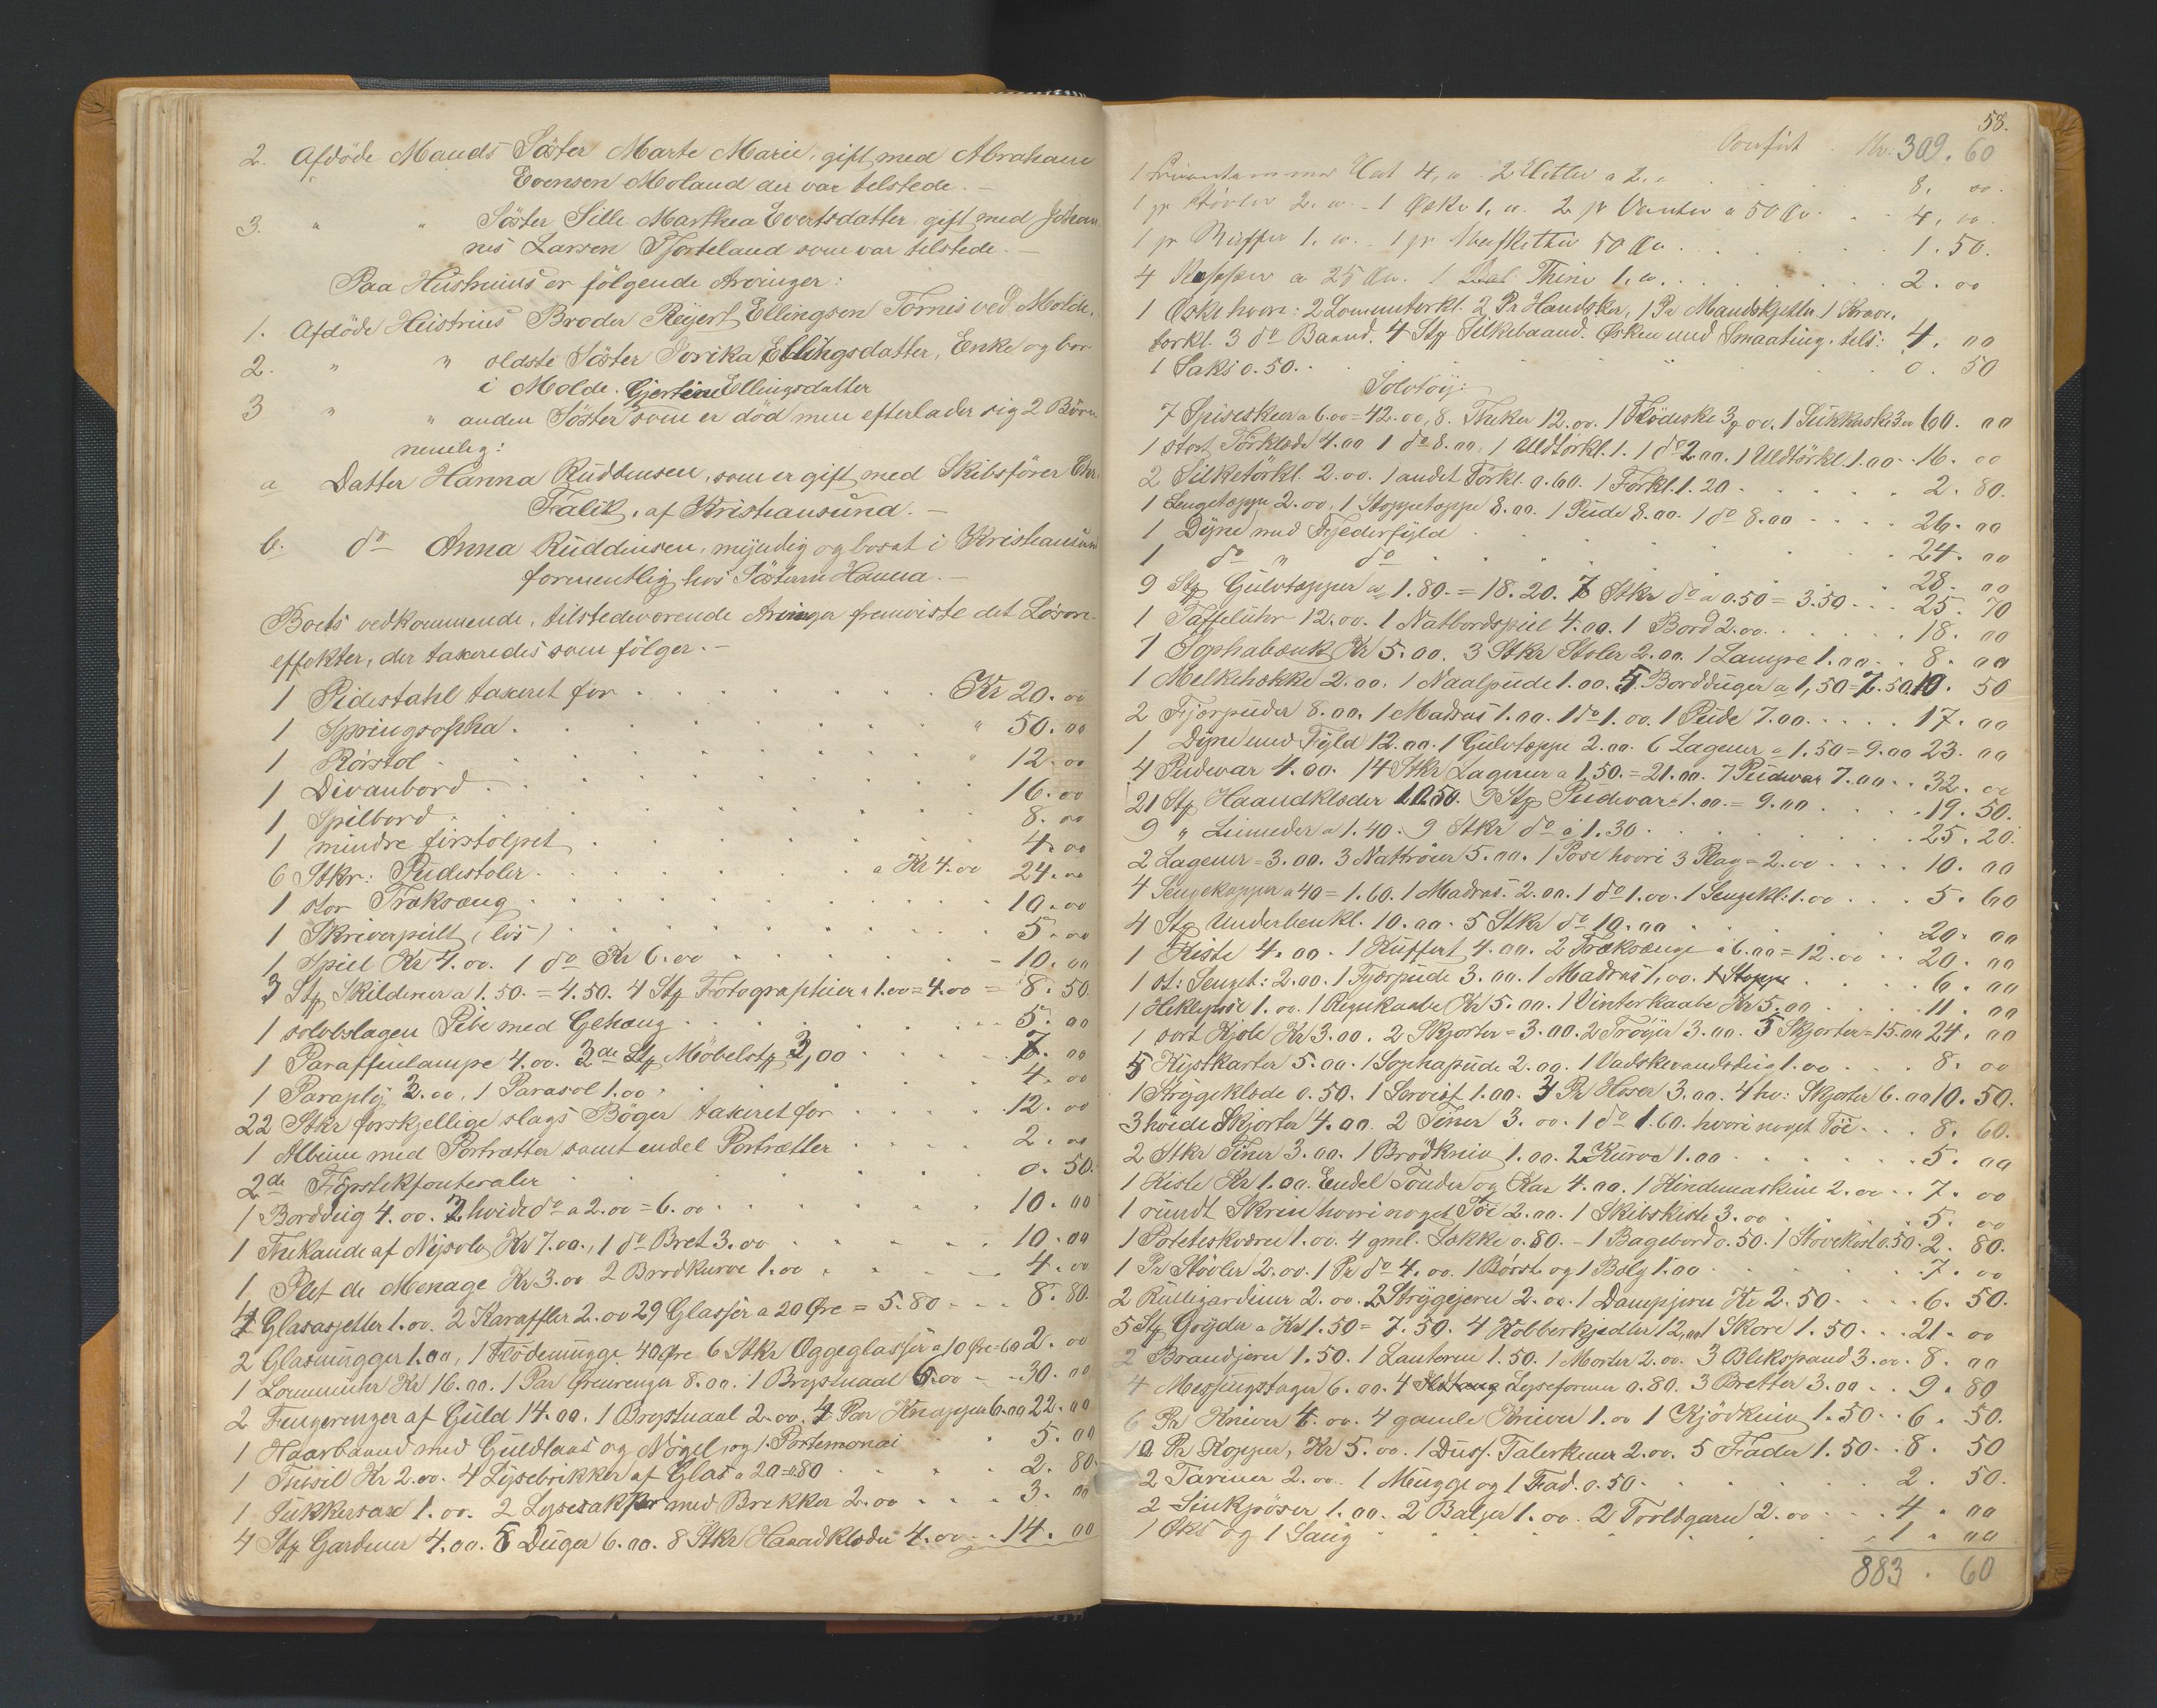 2. Afdöde Mands Söster Marte Marie, gift med Abraham
Evensen Moland der var tilstede. —
3. " " Söster Sille Marthea Evertsdatter gift med Johan
nes Larsen Tjorteland som var tilstede. —
Paa Hustruens er fölgende Arvinger:
1. Afdöde Hustrus Broder Rejert Ellingsen Törnis ved Molde,
2. " " oldste Söster Ellingsdatter, Enke og bor
i Molde. Gjertine Ellingsdatter
3 " " anden Söster som er död men efterlader sig 2 Börn
nemlig:
a Datter Hanna Ruddensen, som er gift med Skibsförer Chr.
Falik, af Kristiansund. —
b. do Anna Ruddensen, myndig og bosat i Kristiansund
formentlig hos Sösteren Hanna. —
Boets vedkommende, tilstedeværende Arvinger fremviste det Lösöre-
effekter, der taxeredes som fölger. —
1 Pidestahl taxeret for Kr 20.00
1 Springsopha " 50.00
1 Rörstol " 12.00
1 Divanbord 16.00
1 Spilbord 8.00
1 mindre firstolpet 4.00
6 Stkr: Pudestoler a Kr 4.00 24.00
1 stor Træksæng 10.00
1 Skriverpult (lös) 5.00
1 Speil Kr 4.00. 1 do Kr 6.00 10.00
3 Stk Skilderier a 1.50. = 4.50. 4 Stk Fotographier a 1.00 = 4.00 = 8.50
1 solvbslagen Pibe med Gehæng 5.00
1 Paraffinlampe 4.00. 3de Stk Möbelstk 3,00 7.00
1 Paraply 3.00, 1 Parasol 1.00 4.00
22 Stkr forskjellige slags Böger taxeret for 12.00
1 Album med Portrætter samt endel Portrætter 2.00
2de Fipstekfouteraler 0.50.
1 Borddug 4.00. 3 hvide do a 2.00 = 6.00 10.00
1 Thekande af Nysolv Kr 7.00, 1 do Bret 3.00 10.00
1 Plet de Menage Kr 3.00 2 Brödkurve 1.00 4.00
4 Glasasjetter 1.00. 2 Karaffler 2.00 29 Glasser a 20 Öre = 5.80 8.80
2 Glasmugger 1.00, 1 Flödemugge 40 Öre 6 Stkr Æggeglasser a 10 Öre = 60 2.00
1 Lommeuhr Kr 16.00. 1 Par Örenringer 8.00. 1 Brystnaal 6.00 30.00
2 Fingerringer af Guld 14.00. 1 Brystnaal 2.00. 4 Par Knapper 6.00 22.00
1 Haarbaand med Guldlaas og Nögel, og 1 Portemonai 5.00
1 Thesil Kr 2.00. 4 Lysebrikker af Glas a 20 = 0.80 2.80
1 Sukkersax 1.00. 2 Lysesakser med Brekker 2.00 3.00
4 Stk Gardiner 4.00. 5 Duger 6.00. 8 Stkr Haandklæder 4.00 14.00
58.
Overfört Kr. 309.60
Hat 4, 2 Hetter a 2, 8.00.
1 pr Stövler 2. 1 Æske 1, 2 pr Vanter a 50 Öre 4,00.
1 pr Muffer 1. 1 pr 50 Öre 1.50.
4 Kopper a 25 Öre. 1 Thine 1, 2.00
1 Æske hvori: 2 Lommetörkl. 2 Pr Handsker, 1 Pr Mandskjetter 1 Krave,
törkl. 3 do Baand. 4 Stk Silkebaand. Æsken med Smaating, tils: 4.00
1 Saks 0.50. 0.50
Solvtöy:
7 Spiseskeer a 6.00 = 42.00, 8. Theskeer 12.00. 1 Flödeske 3,00, 1 Sukkerske 3.00 60.00
1 stort Törklæde 4.00 1 do 8.00, 1 Uldtörkl. 1. 1 do 2.00. 1 Uldtörkl. 1.00 16.00
2 Silketörkl. 2.00. 1 andet Törkl. 0.60. 1 Forkl. 1.20 2.80.
1 Sengetæppe 2.00, 1 Stoppetæppe 8.00. 1 Pude 8.00. 1 do 8.00 26.00
1 Dyne med Fjederfyld 24.00
1 do " do 28.00
9 Stk Gulvtæpper a 1.80. = 18.20. 7 Stkr do a 0.50 = 3.50 25.70
1 Taffeluhr 12.00. 1 Natbordspeil 4.00. 1 Bord 2.00 18.00
1 Sophabænk Kr 5.00. 3 Stkr Stoler 2.00. 1 Lampe 1.00 8.00
1 Melkehække 2.00. 1 Naalpude 1.00. 5 Bordduger a 1,50 = 7.50 10.50
2 Fjærpuder 8.00. 1 Madras 1.00. 1 do 1.00. 1 Pude 7.00 17.00
1 Dyne med Fyld 12.00. 1 Gulvtæppe 2.00. 6 Lagener a 1.50 = 9.00 23.00
4 Pudevar 4.00. 14 Stkr Lagener a 1.50. = 21.00. 7 Pudevar 7.00 32.00
21 Stk Haandklæder 10.50. 9 Stk Pudevar a 1.00 = 9.00 19.50.
9 " Linneder a 1.40. 9 Stkr do a 1.30 25.20.
2 Lagener = 3.00. 3 Nattröier 5.00. 1 Pose hvori 3 Plag = 2.00 10.00
4 Sengekapper a 40 = 1.60. 1 Madras. 2.00. 1 do 1.00. 1 Sengekl: 1.00 5.60
4 Stk Underbenkl. 10.00. 5 Stkr do 10.00 20.00
1 Kiste 4.00. 1 Kuffert 4.00. 2 Træksænge a 6.00 = 12.00 20.00
1 st: Senget: 2.00. 1 Fjærpude 3.00. 1 Madras 1,00. 1 Stoppe 6.00
1 1.00. 1 Regnkaabe Kr 5.00. 1 Vinterkaabe Kr 5.00 11.00
1 sort Kjole Kr 3.00. 2 Skjorter = 3.00. 2 Tröyer 3.00. 5 Skjorter = 15.00 24.00
5 Kystkarter 5.00. 1 Sophapude 2.00. 1 Vadskevandsteig 1.00 8.00
1 Strygeklæde 0.50. 1 Serviet 1.00. 3 Pr Hoser 3.00. 4 hv: Skjorter 6.00 10.50.
3 hvide Skjorter 4.00. 2 Tiner 3.00. 1 do 1.60. hvori noget Töi 8.60.
2 Stkr Tiner 3.00. 1 Brödkniv 1.00. 2 Kurve 1.00 5.00
1 Kiste Kr 1.00. Endel Tönder og Kar 4.00. 1 Kindemaskine 2.00 7.00
1 rundt Skrin hvori noget Töi 2.00. 1 Skibskiste 3.00 5.00
1 Poteteskværn 1.00. 4 gml. Sække 0.80. — 1 Bagebord 0.50. 1 Stövekost 0.50. 2.80.
1 Pr Stövler 2.00. 1 Pr do 4.00. 1 Börst. og 1 Bolg 1.00 7.00
2 Rullgardiner 2.00. 2 Strygejern 2.00. 1 Dampjern Kr 2.50 6.50.
5 Stk Gryder a Kr 1.50 = 7.50. 4 Kobberkjedler 12,00 1 Skore 1.50 21.00
2 Brandjern 1.50. 1 Lanterne 1.50. 1 Morter 2.00. 3 Blikspand 3.00. 8.00
4 Messingstager 6.00. 4 Lyseformer 0.80. 3 Bretter 3.00 9.80
6 Pr Kniver 4.00. 4 gamle Kniver 1.00 1 Kjödkniv 1.50 6.50.
10 Pr Kopper, Kr 5.00. 1 Duss. Talerkener 2.00. 5 Fader 1.50 8.50
2 Tariner 2.00. 1 Mugge og 1 Fad. 0.50 2.50.
2 Sinkpöser 1.00. 2 Baljer 1.00. 2 Troldgarn 2.00 4.00
1 Öks og 1 Saug 1.00
883.60